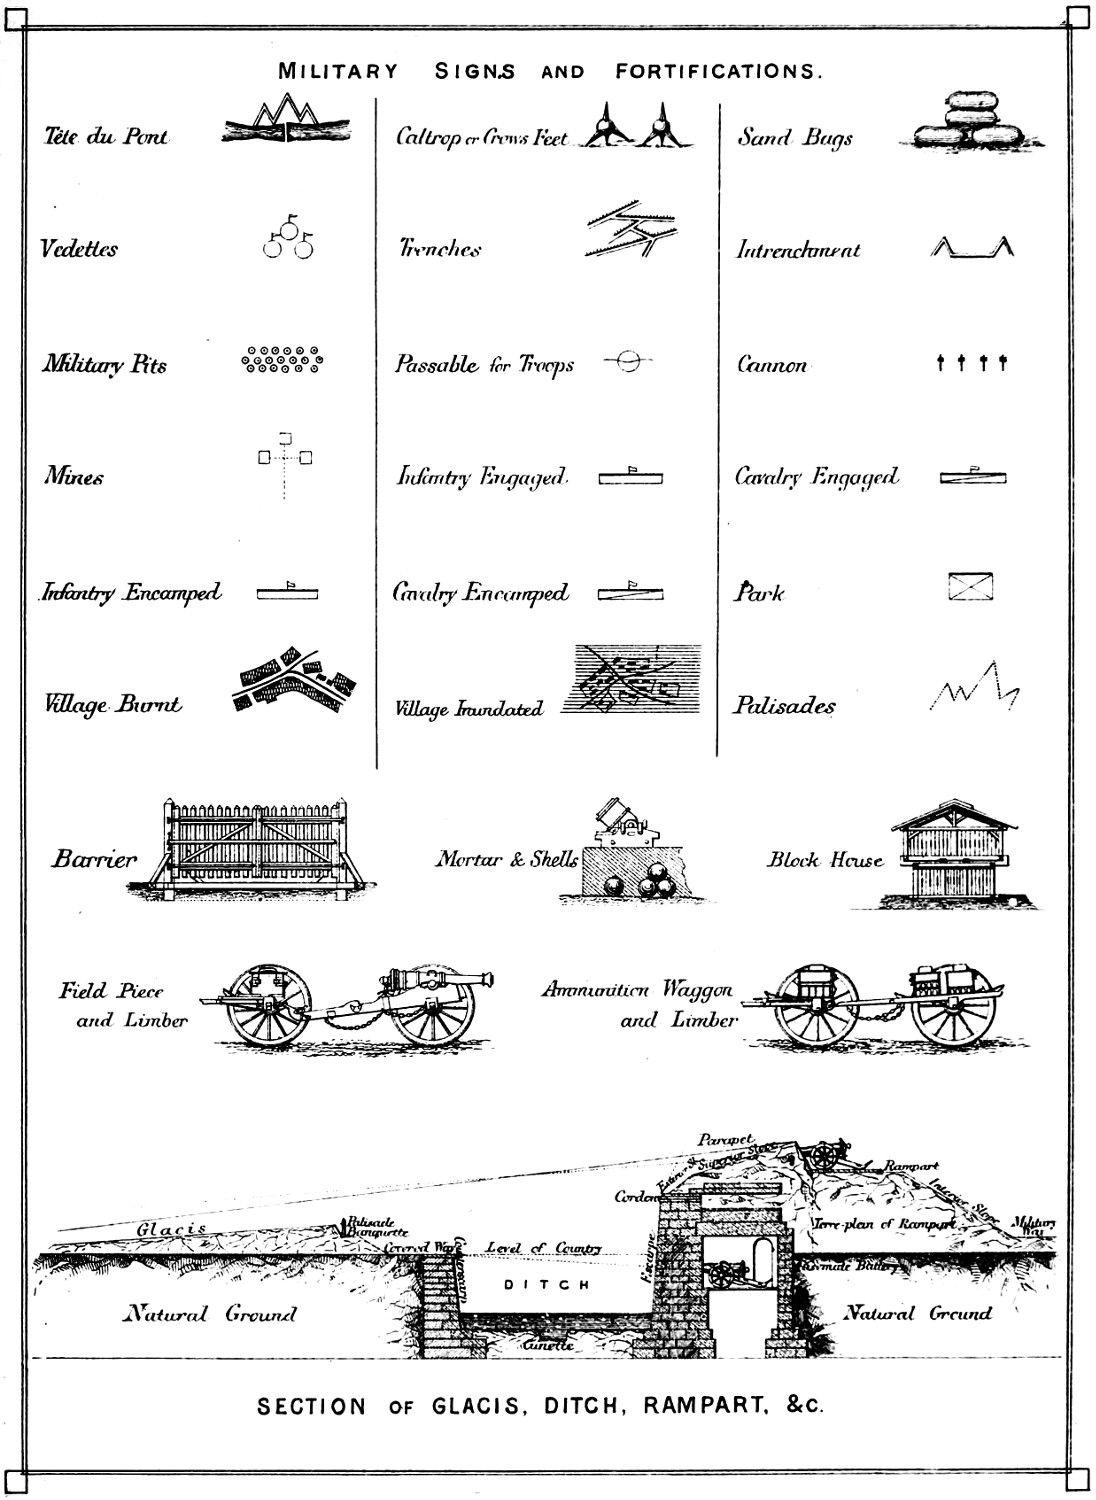 MILITARY SIGNS AND FORTIFICATIONS.
Tête du Pont
Caltrop or Crows Feet
Sand Bags
Vedettes
Trenches
Intrenchment
Military Pits
Passable for Troops
Cannon
Mines
Infantry Engaged.
Cavalry Engaged
Infantry Encamped
Cavalry Encamped
Park
Village Burnt
Village Inundated
Palisades
Barrier
Mortar & Shells
Block House
Field Piece
and Limber
Ammunition Waggon
and Limber
Parapet
Superior Slope
Exterior Sl.
Rampart
Cordon
Interior Slope
Glacis
Palisade
Banquette
Terre-plan of Rampart
Military
Way
Covered Way
Level of Country
Escarpe
DITCH
Casemate Battery
Natural Ground
Natural Ground
Cunette
SECTION OF GLACIS, DITCH, RAMPART, &c.